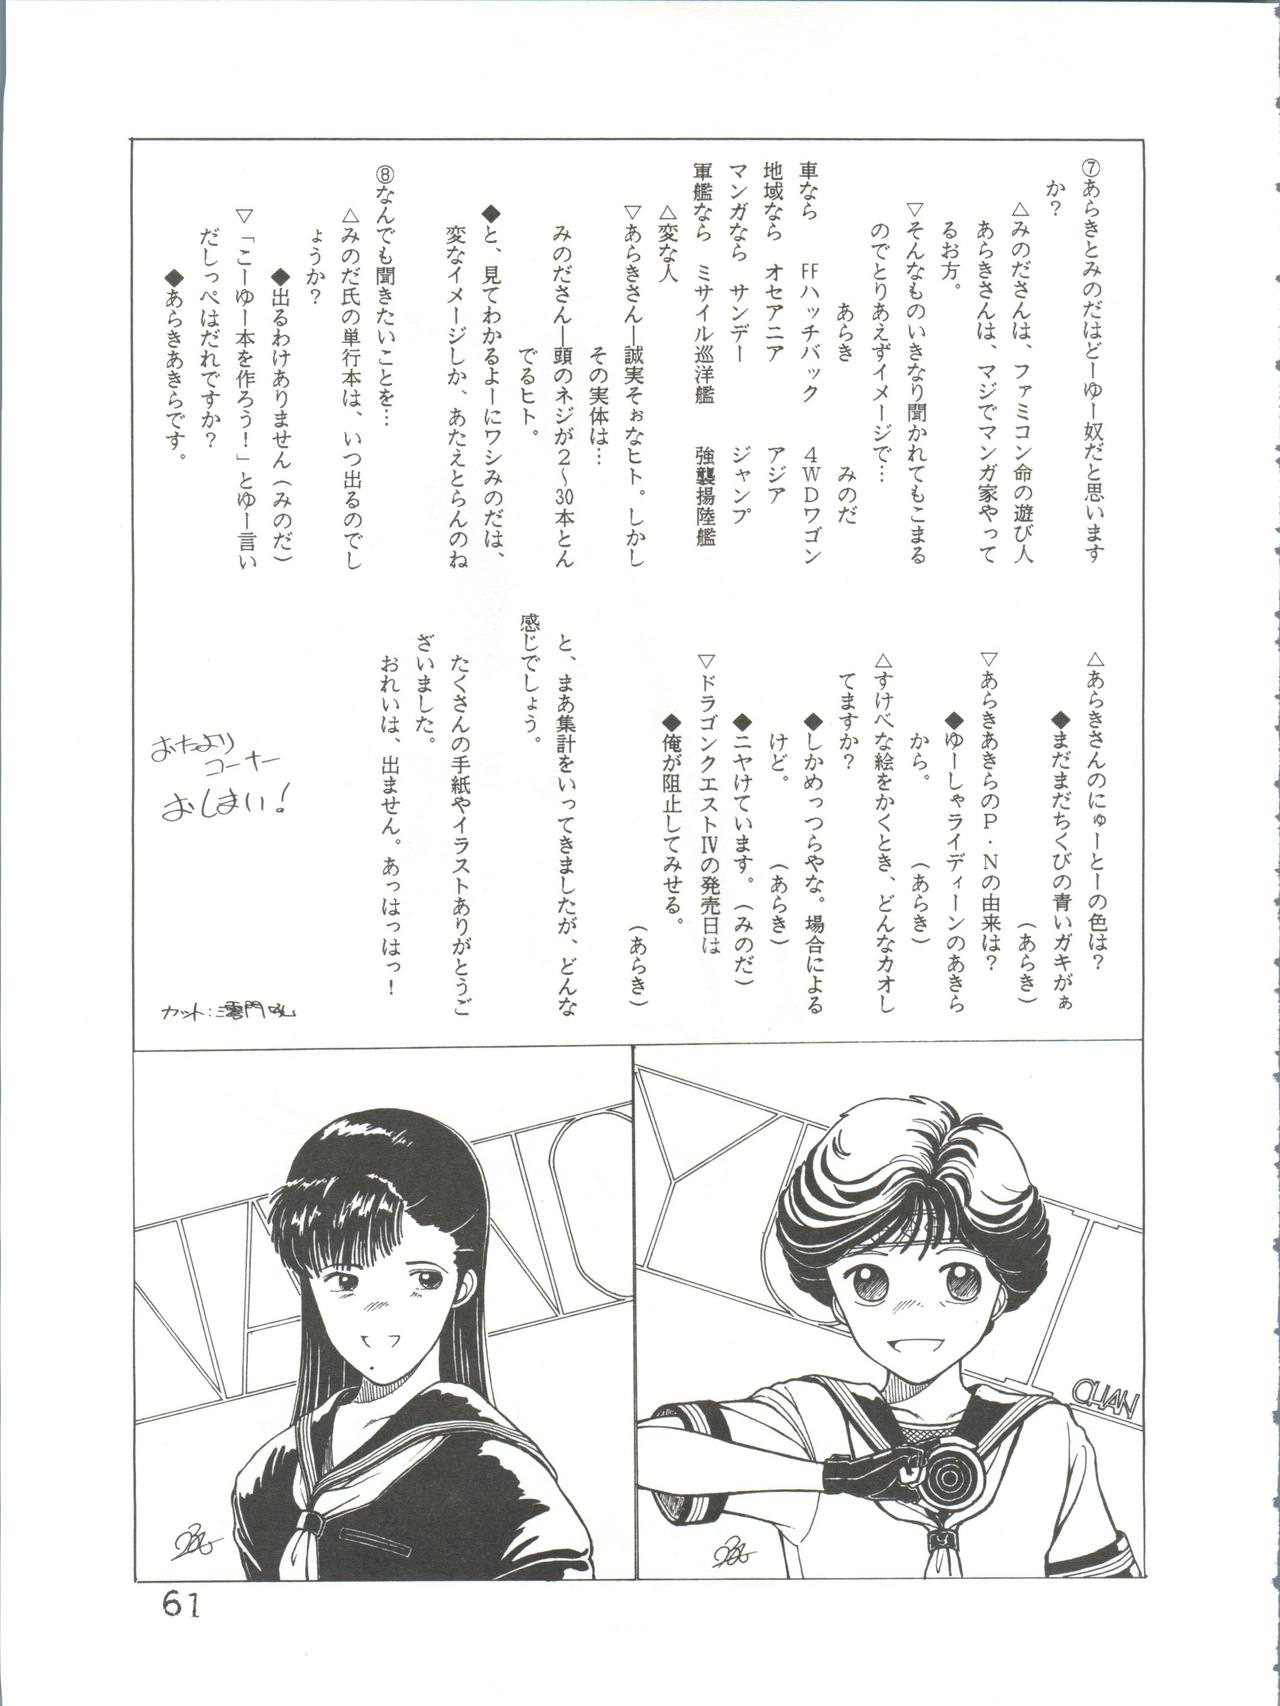 ⑦あらきとみのだはどーゆー奴だと思います
か？
△みのださんは、ファミコン命の遊び人
あらきさんは、マジでマンガ家やって
るお方。
▽そんなものいきなり聞かれてもこまる
のでとりあえずイメージで…
あらき　みのだ
車なら　FFハッチバック　4WDワゴン
地域なら　オセアニア　アジア
マンガなら　サンデー　ジャンプ
軍艦なら　ミサイル巡洋艦　強襲揚陸艦
△変な人
▽あらきさん―誠実そぉなヒト。しかし
その実体は…
みのださん―頭のネジが2～30本とん
でるヒト。
◆と、見てわかるよーにワシみのだは、
変なイメージしか、あたえとらんのね
⑧なんでも聞きたいことを…
△みのだ氏の単行本は、いつ出るのでし
ょうか？
◆出るわけありません（みのだ）
▽「こーゆー本を作ろう！」とゆー言い
だしっぺはだれですか？
◆あらきあきらです。
△あらきさんのにゅーとーの色は？
◆まだまだちくびの青いガキがぁ
（あらき）
▽あらきあきらのP・Nの由来は？
◆ゆーしゃライディーンのあきら
から。　（あらき）
△すけべな絵をかくとき、どんなカオし
てますか？
◆しかめっつらやな。場合による
けど。　（あらき）
◆ニヤけています。（みのだ）
▽ドラゴンクエストⅣの発売日は
◆俺が阻止してみせる。
（あらき）
と、まあ集計をいってきましたが、どんな
感じでしょう。
たくさんの手紙やイラストありがとうご
ざいました。
おれいは、出ません。あっはっはっ！
おたより
コーナー
おしまい！
カット：
CHAN
61